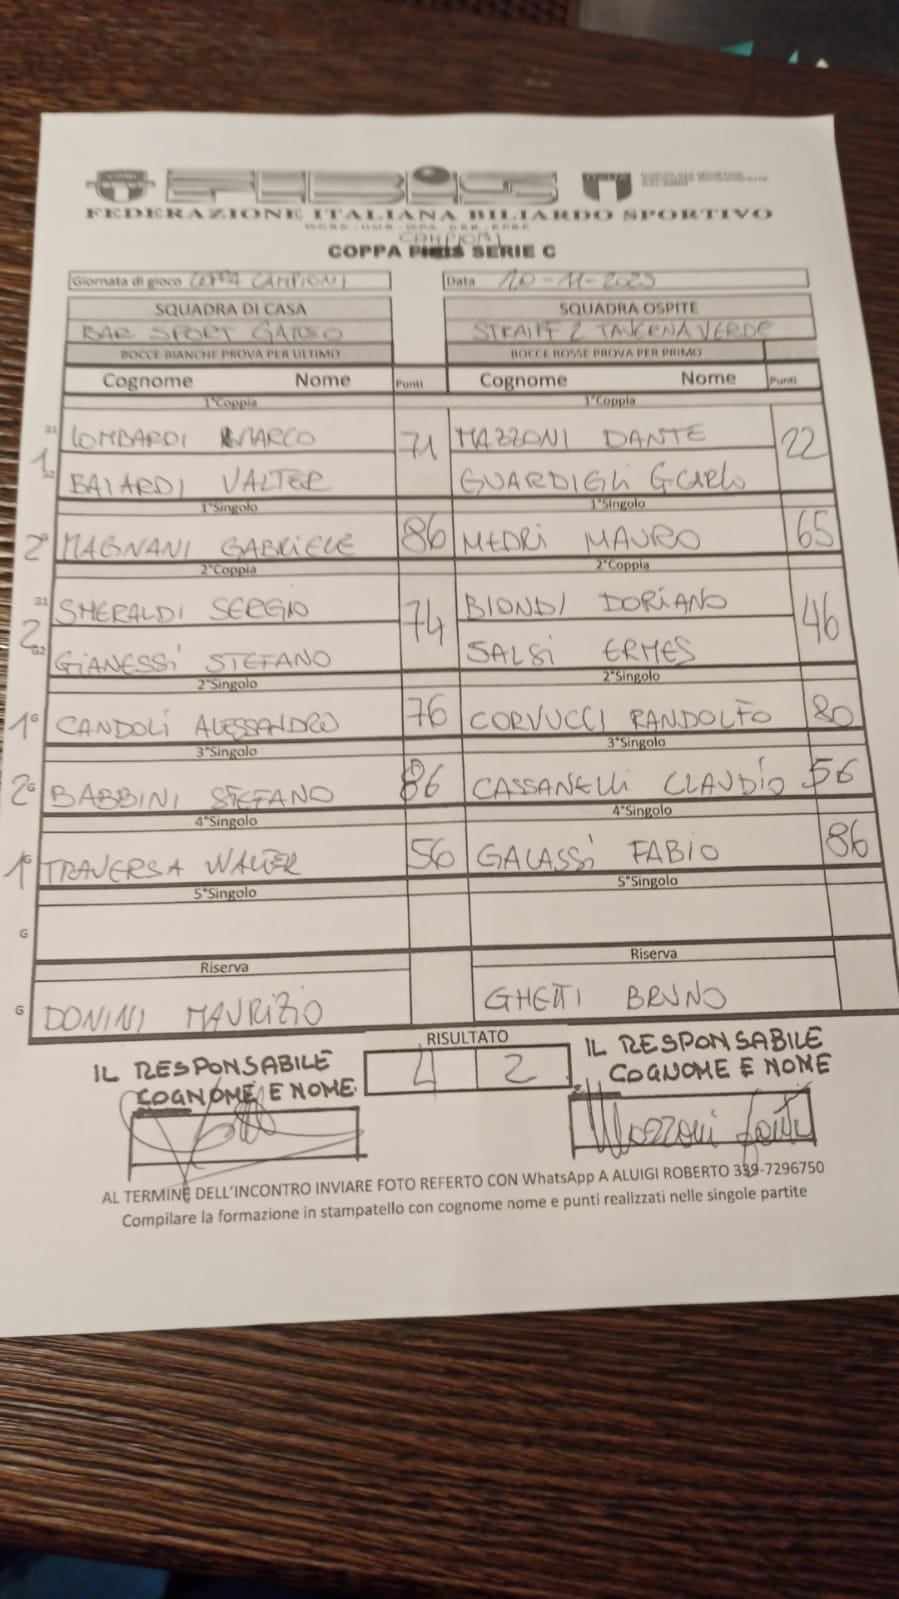 FIBIS
FEDERAZIONE ITALIANA BILIARDO SPORTIVO
CAMPIONI
COPPA SERIE C
Giornata di gioco COPPA CAMPIONI Data 10-11-2023
SQUADRA DI CASA SQUADRA OSPITE
BAR SPORT GATEO STRAIFF 2 TAVERNA VERDE
BOCCE BIANCHE PROVA PER ULTIMO BOCCE ROSSE PROVA PER PRIMO
Cognome Nome Punti Cognome Nome Punti
1°Coppia 1°Coppia
S1 LOMBARDI MARCO 71 MAZZONI DANTE 22
1 S2 BAIARDI VALTER GUARDIGLI G CARLO
1°Singolo 1°Singolo
2G MAGNANI GABRIELE 86 MEDRI MAURO 65
2°Coppia 2°Coppia
S1 SMERALDI SERGIO 74 BIONDI DORIANO 46
2 S2 GIANESSI STEFANO SALSI ERMES
2°Singolo 2°Singolo
1G CANDOLI ALESSANDRO 76 CORVUCCI RANDOLFO 80
3°Singolo 3°Singolo
2G BABBINI STEFANO 86 CASSANELLI CLAUDIO 56
4°Singolo 4°Singolo
1G TRAVERSA WALTER 56 GALASSI FABIO 86
5°Singolo 5°Singolo
G
Riserva Riserva
G DONINI MAURIZIO GHETTI BRUNO
RISULTATO
4 2
IL RESPONSABILE IL RESPONSABILE
COGNOME E NOME COGNOME E NOME
Mazzoni Dante
AL TERMINE DELL'INCONTRO INVIARE FOTO REFERTO CON WhatsApp A ALUIGI ROBERTO 339-7296750
Compilare la formazione in stampatello con cognome nome e punti realizzati nelle singole partite